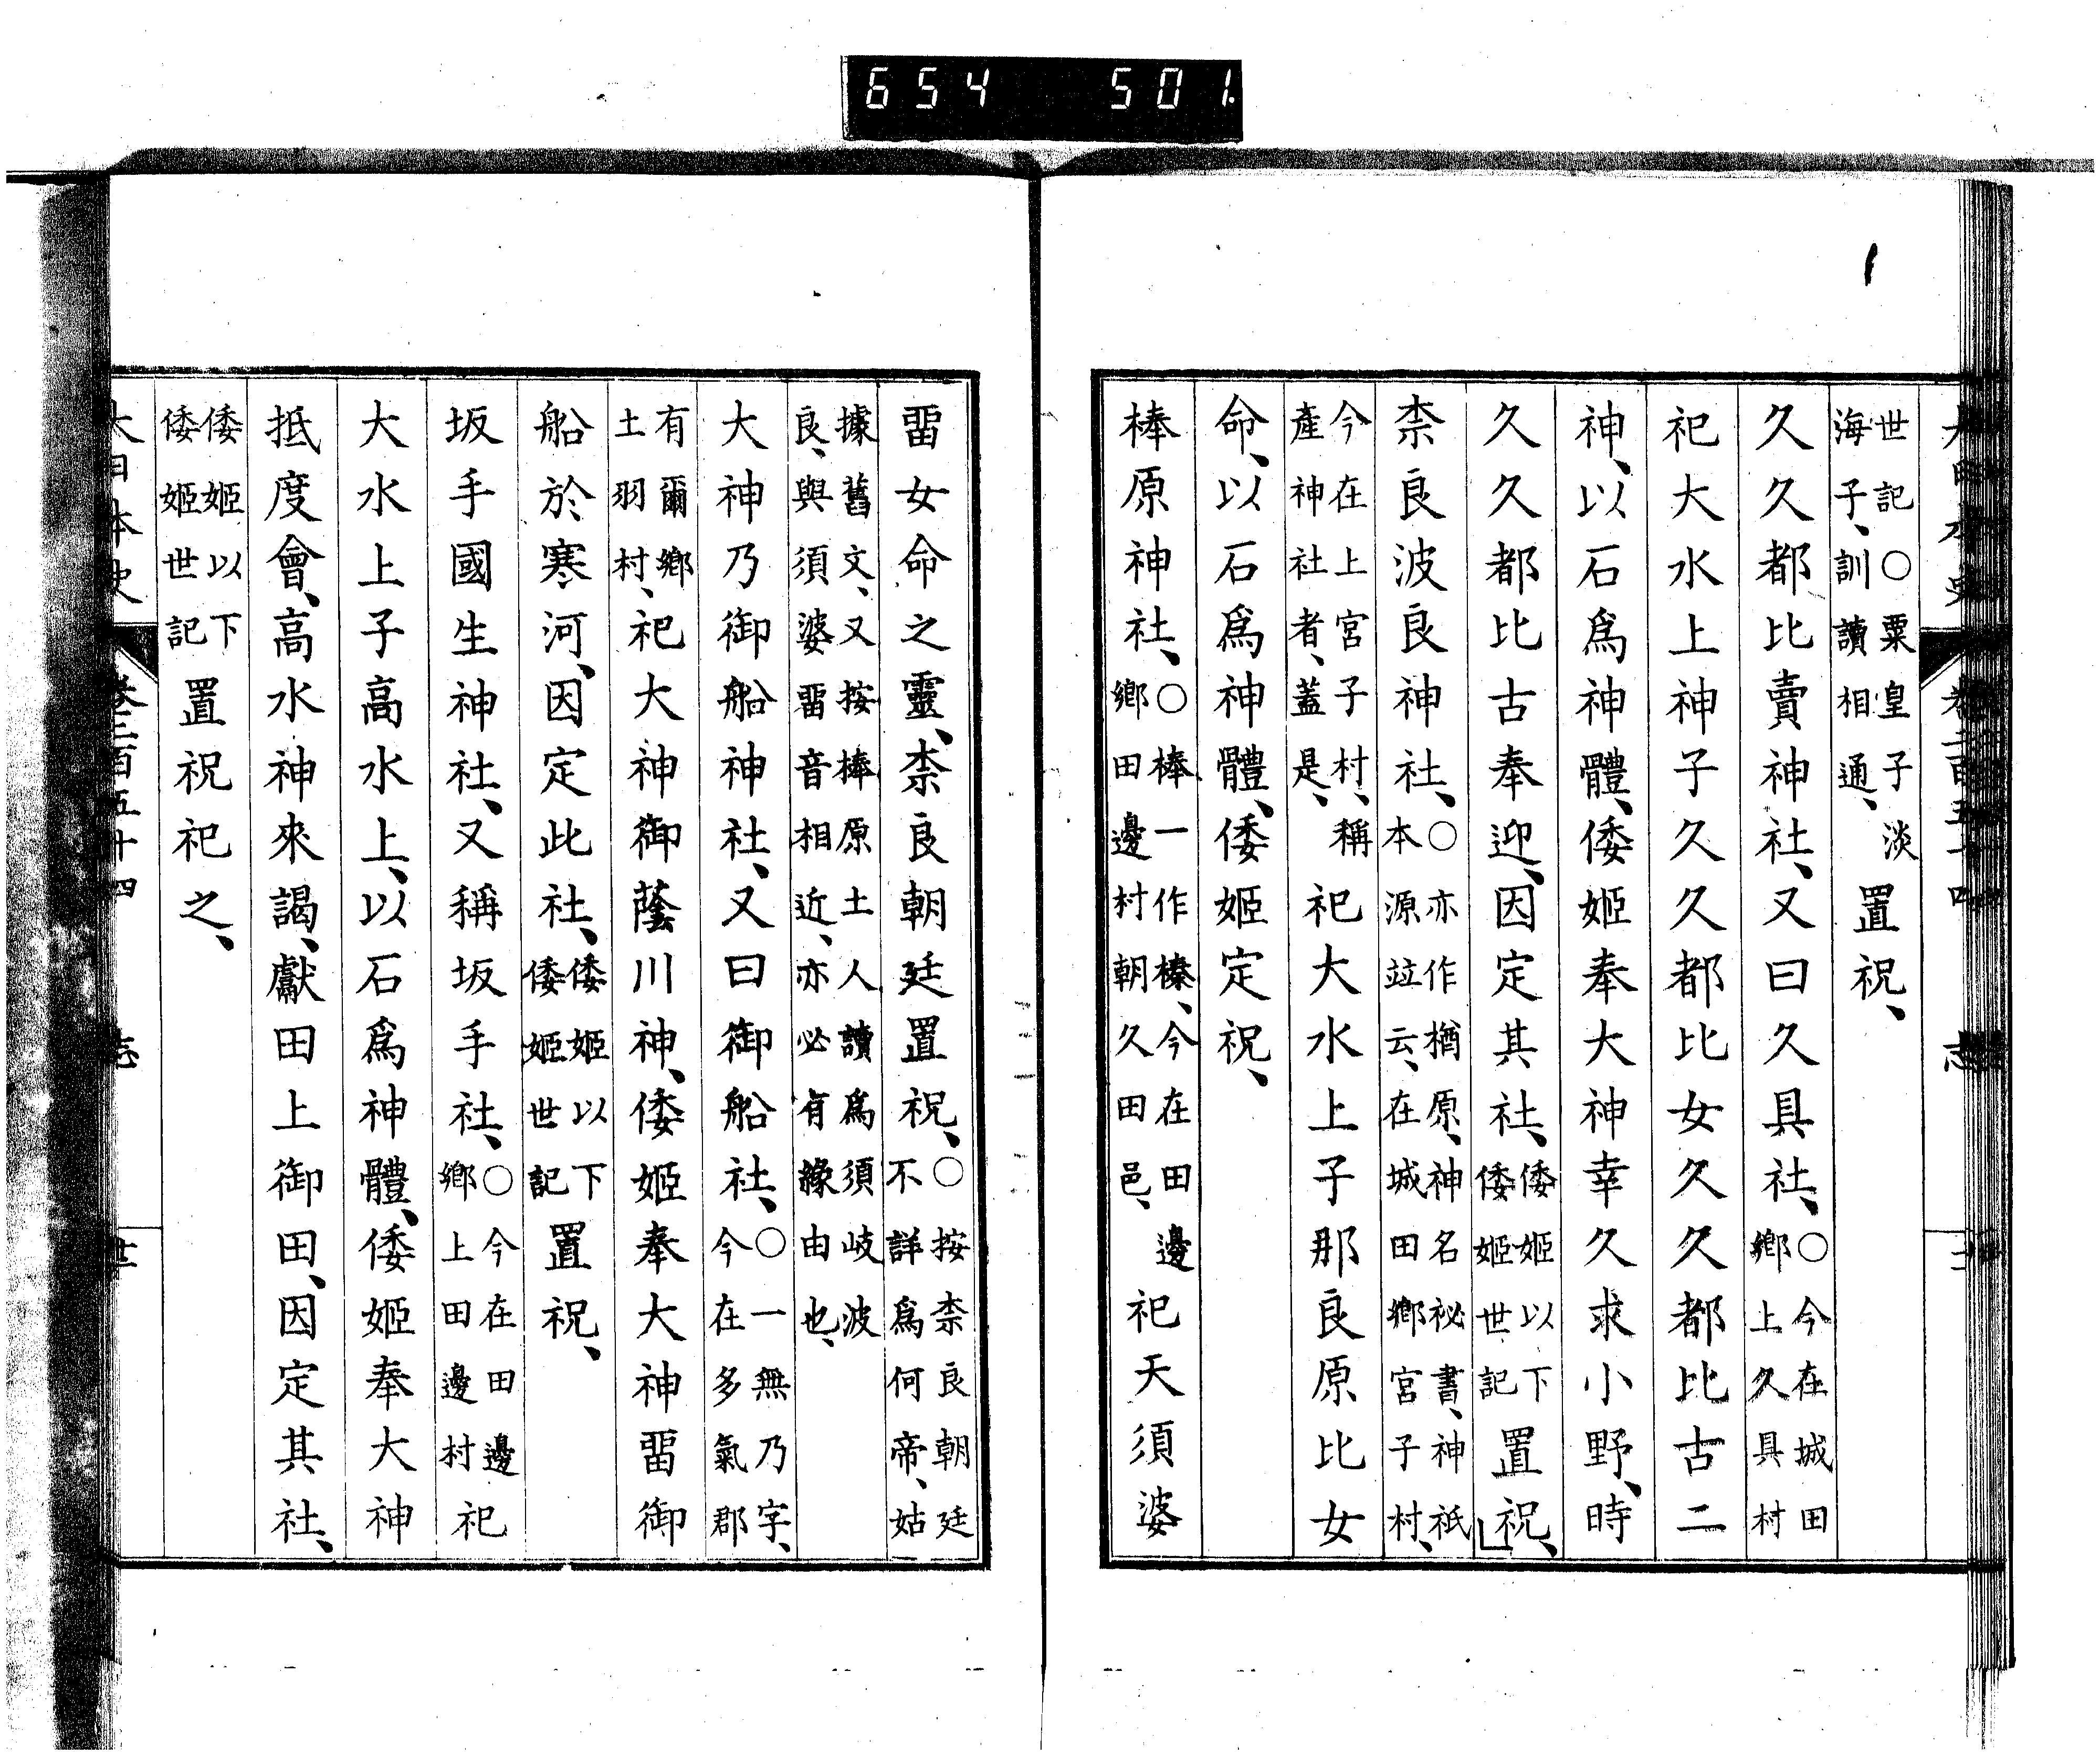 大日本史 卷二百五十四 志
世記○粟皇子淡海子、訓讀相通、置祝、
久久都比賣神社、又曰久具社、○今在城田鄉上久具村
祀大水上神子久久都比女久久都比古二
神、以石爲神體、倭姬奉大神幸久求小野、時
久久都比古奉迎、因定其社、倭姬以下倭姬世記置祝、
柰良波良神社、○亦作楢原、神名祕書、神祇本源竝云、在城田鄉宮子村、
今在上宮子村、稱產神社者、蓋是、祀大水上子那良原比女
命、以石爲神體、倭姬定祝、
棒原神社、○棒一作榛、今在田邊鄉田邊村朝久田邑、祀天須婆
畱女命之靈、柰良朝廷置祝、○按柰良朝廷不詳爲何帝、姑
據舊文、又按棒原土人讀爲須岐波良、與須婆畱音相近、亦必有緣由也、
大神乃御船神社、又曰御船社、○一無乃字、今在多氣郡
有爾鄉土羽村、祀大神御蔭川神、倭姬奉大神畱御
船於寒河、因定此社、倭姬以下倭姬世記置祝、
坂手國生神社、又稱坂手社、○今在田邊鄉上田邊村祀
大水上子高水上、以石爲神體、倭姬奉大神
抵度會、高水神來謁、獻田上御田、因定其社、
倭姬以下倭姬世記置祝祀之、
大日本史 卷二百五十四 志
654 501